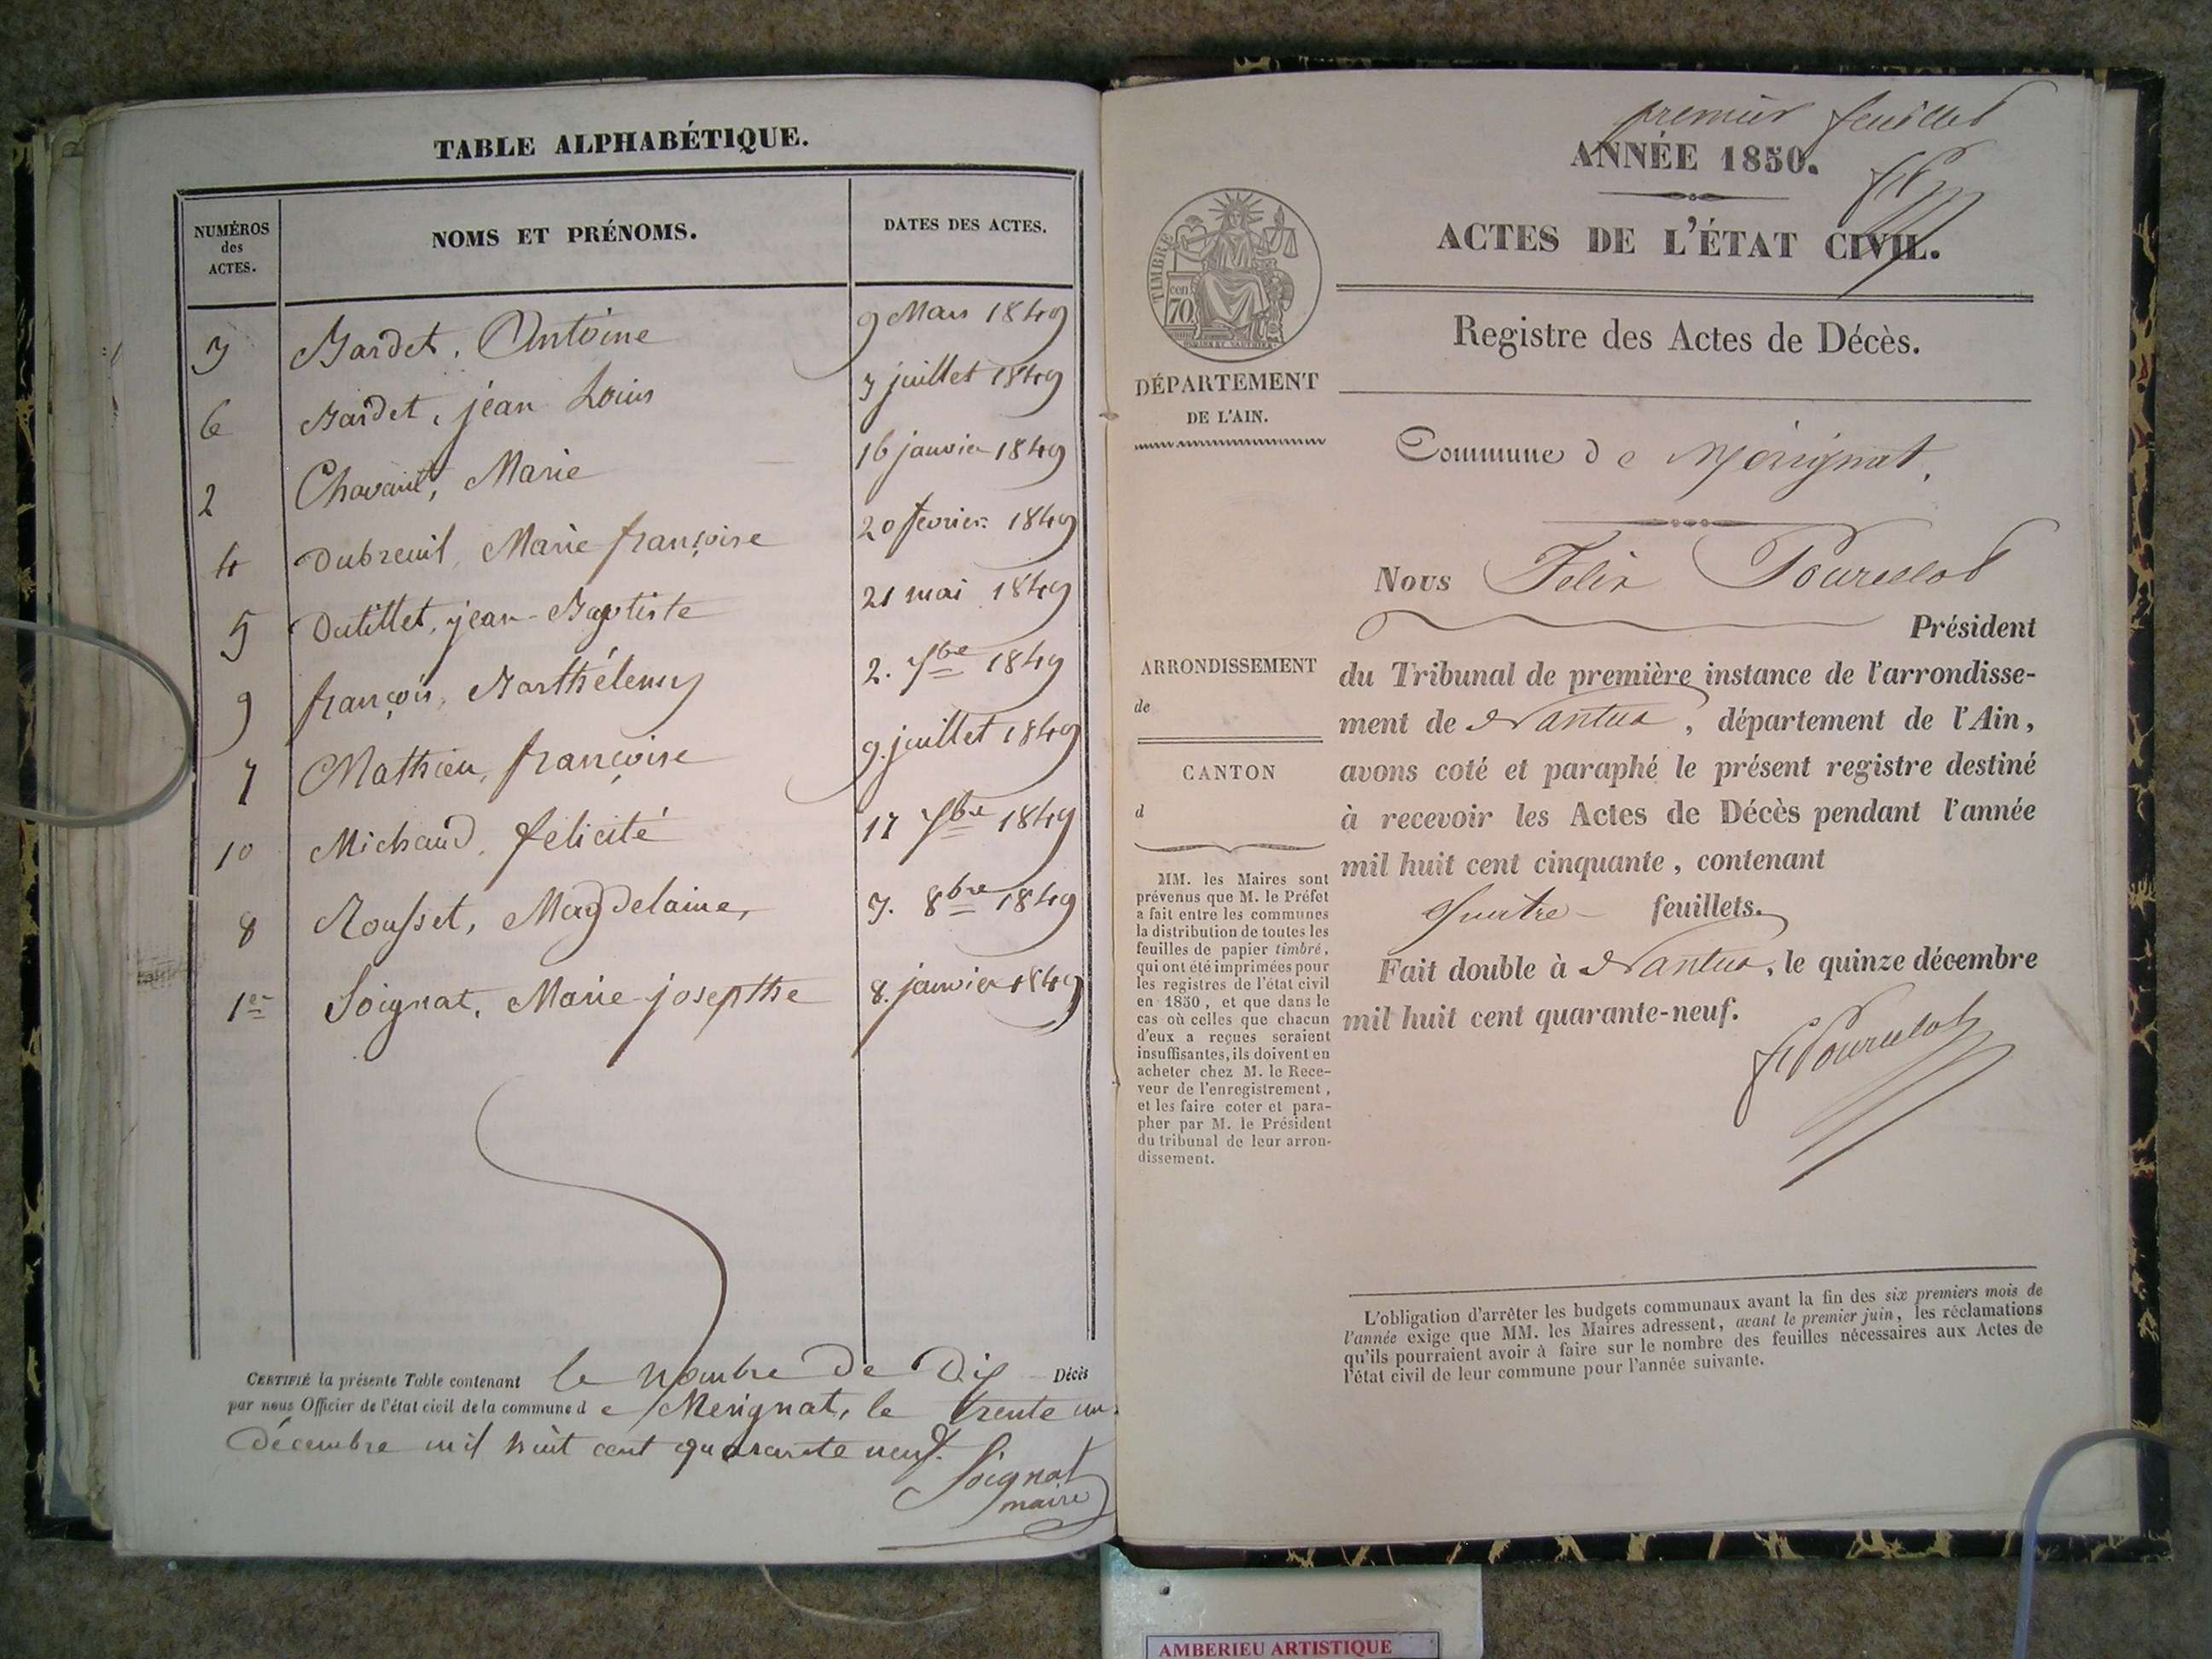 TABLE ALPHABÉTIQUE.
NUMÉROS des ACTES.
NOMS ET PRÉNOMS.
DATES DES ACTES.
3 Bardet, Antoine 9 Mars 1849
6 Bardet, jéan Louis 3 juillet 1849
2 Chavant, Marie 16 janvier 1849
4 Dubreuil, Marie françoise 20 fevrier 1849
5 Dutillet, jean-Baptiste 21 mai 1849
9 françois, Barthélemy 2. 7bre 1849
7 Mathieu, françoise 9. juillet 1849
10 Michaud, félicité 17 7bre 1849
8 Rousset, Magdelaine, 3. 8bre 1849
1er Soignat, Marie josepthe 8. janvier 1849
CERTIFIÉ la présente Table contenant le nombre de Dix Décès
par nous Officier de l'état civil de la commune d e Merignat, le trente un
décembre mil huit cent quarante neuf.
Soignat
maire
premier feuillet
ANNÉE 1850.
ACTES DE L'ÉTAT CIVIL.
TIMBRE
cen
70
Registre des Actes de Décès.
DÉPARTEMENT
DE L'AIN.
Commune d e Mérignat.
Nous Felix Pourcelot
Président
ARRONDISSEMENT
de
CANTON
d
du Tribunal de première instance de l'arrondisse-
ment de Nantua, département de l'Ain,
avons coté et paraphé le présent registre destiné
à recevoir les Actes de Décès pendant l'année
mil huit cent cinquante, contenant
quatre feuillets.
Fait double à Nantua, le quinze décembre
mil huit cent quarante-neuf.
F Pourcelot
MM. les Maires sont
prévenus que M. le Préfet
a fait entre les communes
la distribution de toutes les
feuilles de papier timbré,
qui ont été imprimées pour
les registres de l'état civil
en 1850, et que dans le
cas où celles que chacun
d'eux a reçues seraient
insuffisantes, ils doivent en
acheter chez M. le Rece-
veur de l'enregistrement,
et les faire coter et para-
pher par M. le Président
du tribunal de leur arron-
dissement.
L'obligation d'arrêter les budgets communaux avant la fin des six premiers mois de
l'année exige que MM. les Maires adressent, avant le premier juin, les réclamations
qu'ils pourraient avoir à faire sur le nombre des feuilles nécessaires aux Actes de
l'état civil de leur commune pour l'année suivante.
AMBERIEU ARTISTIQUE